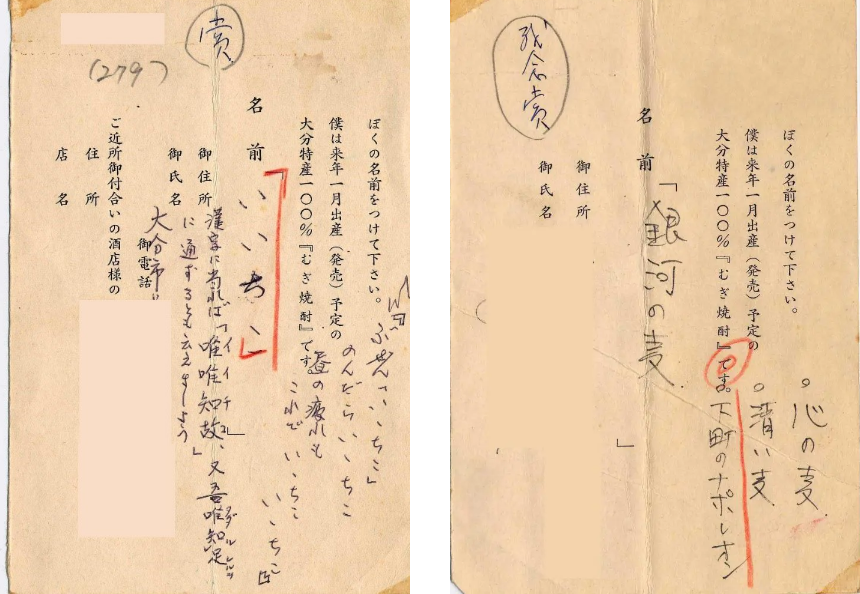 賞
(279)
ぼくの名前をつけて下さい。
僕は来年一月出産(発売)予定の
大分特産一〇〇%『むぎ焼酎』です。
名前
「いいちこ」
のんだらいいちこ
昼の疲れも
これでいいちこ
いいちこ
御住所
御氏名
漢字に当れば「唯唯知故」、又吾唯知足
に通ずるとも云えましょう」
大分市
御電話
ご近所御付合いの酒店様の
住所
店名
残念賞
ぼくの名前をつけて下さい。
僕は来年一月出産(発売)予定の
大分特産一〇〇%『むぎ焼酎』です。
。心の麦
。清い麦
下町のナポレオン
名前
「銀河の麦
」
御住所
御氏名